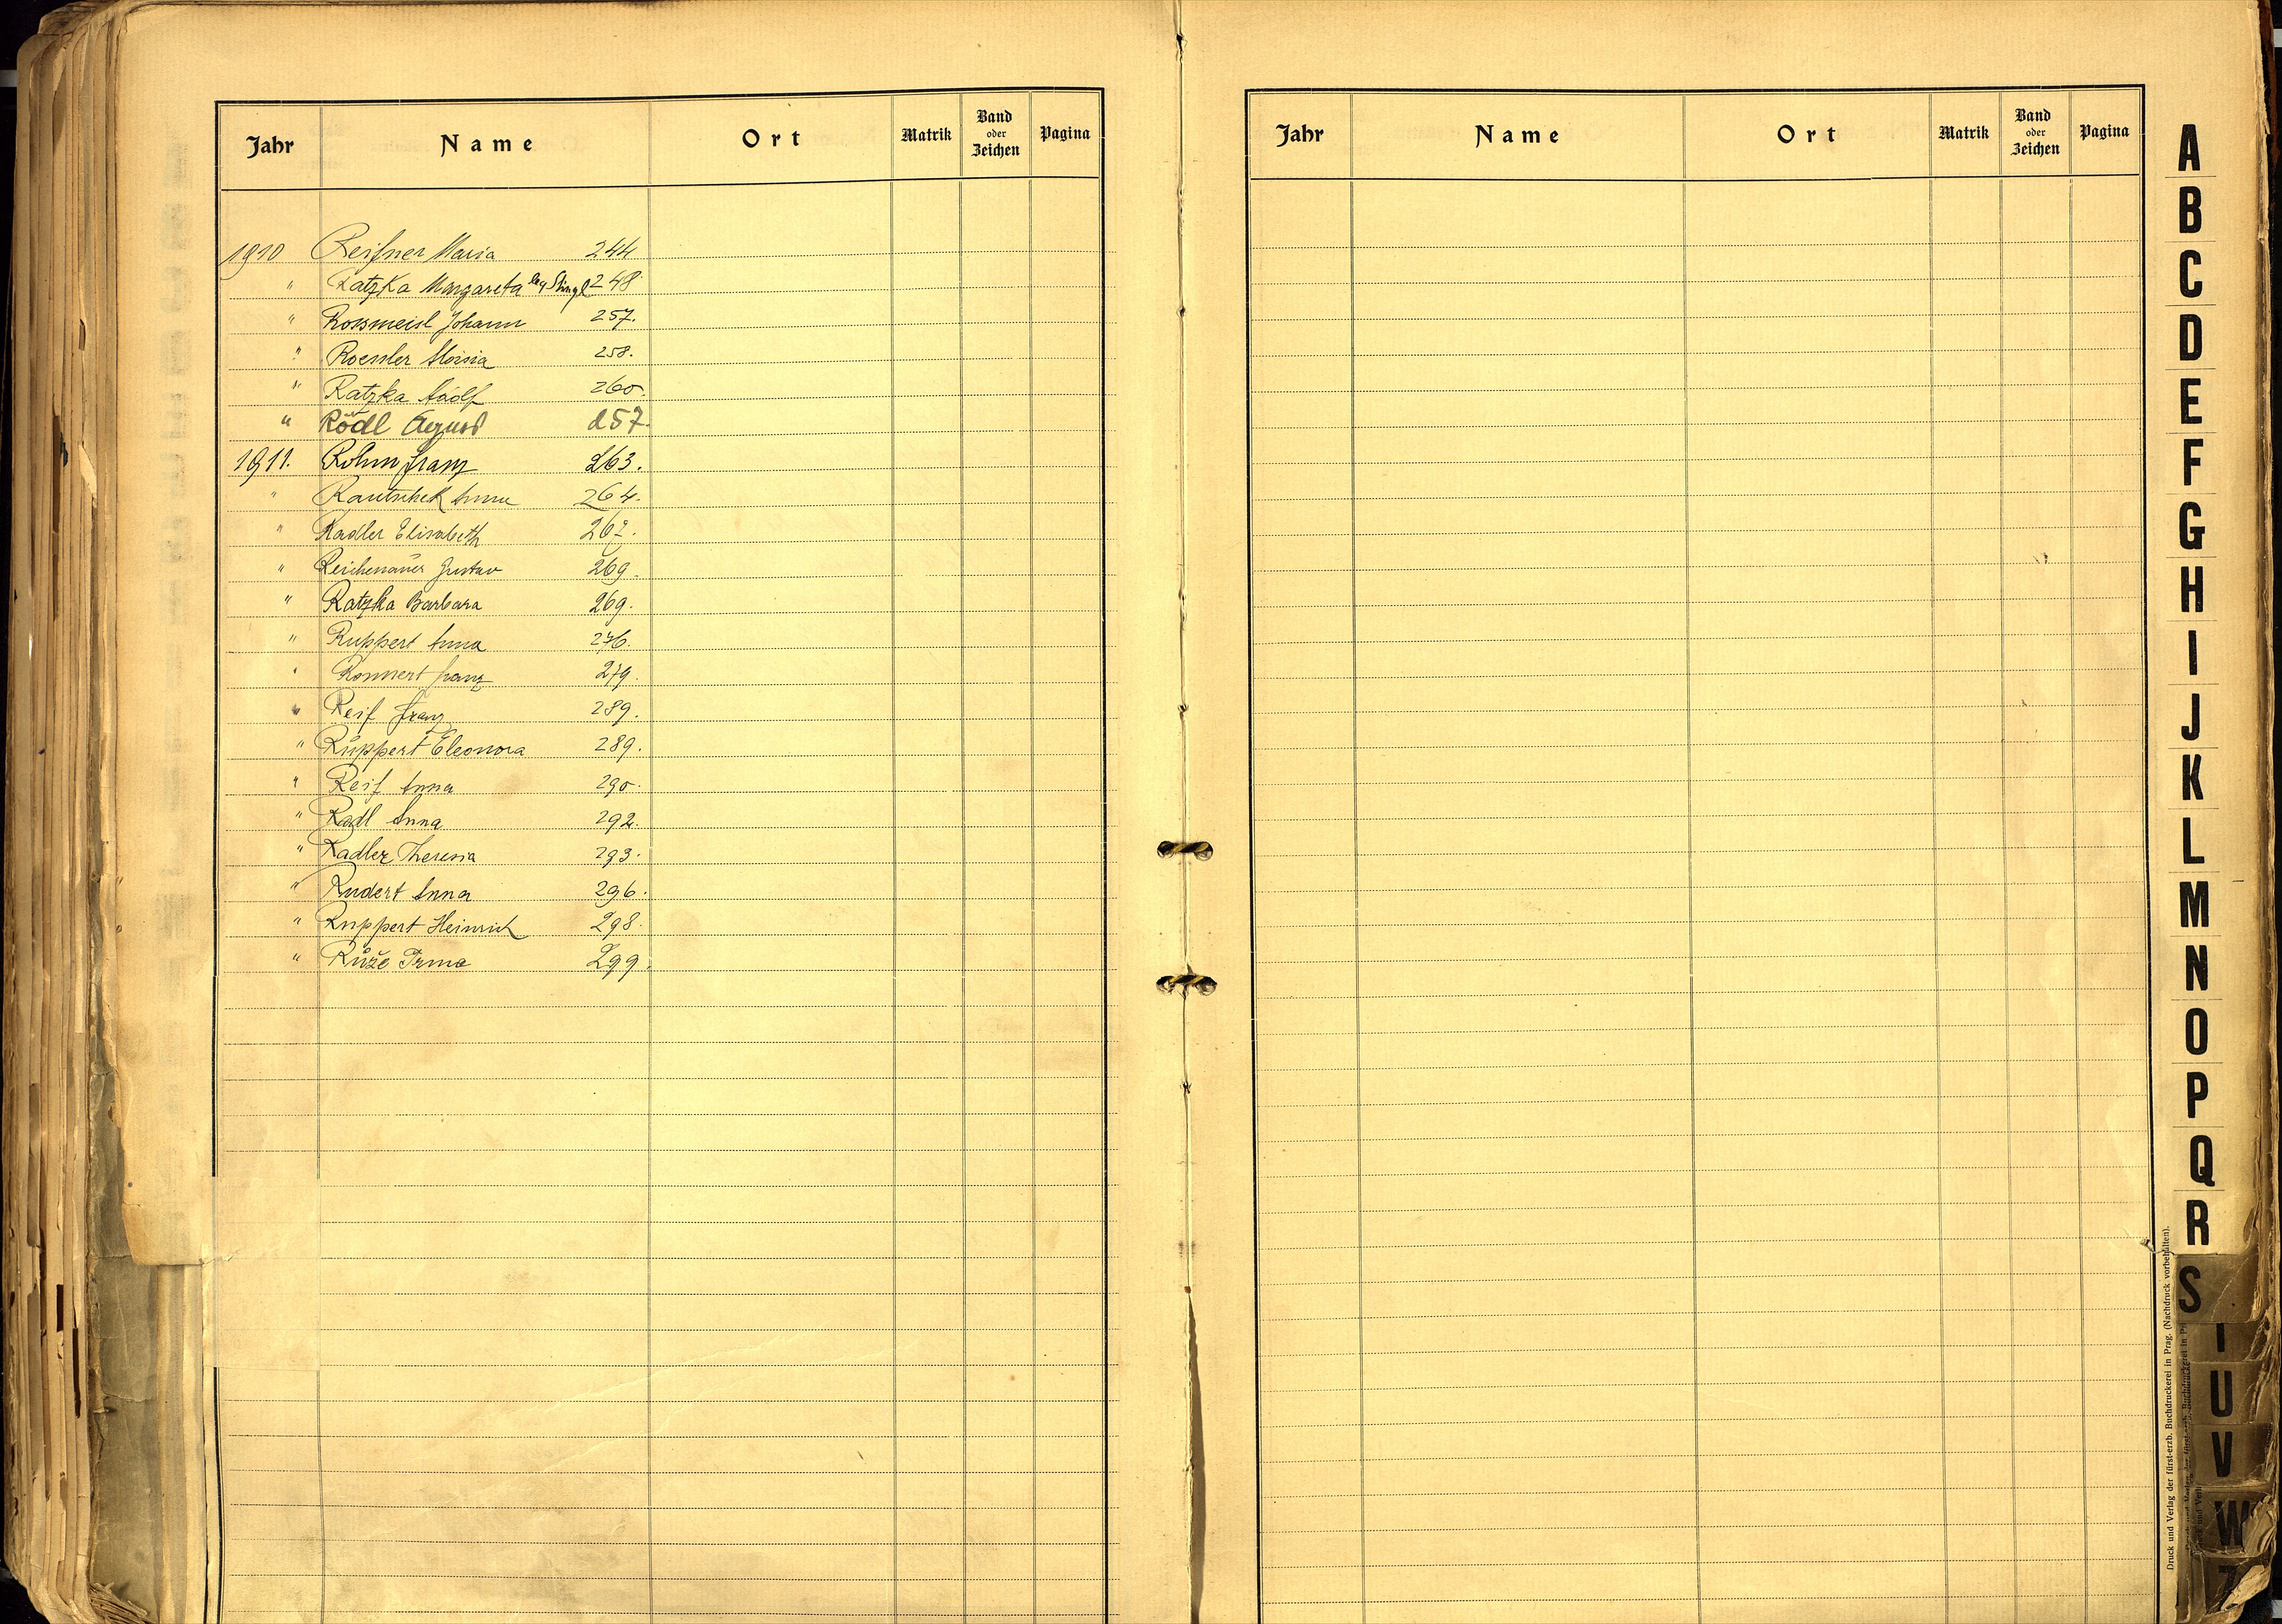 Jahr Name Ort Matrik Band oder Zeichen Pagina
1910 Reifsner Maria 244
" Ratzka Margareta leg Stingl 248
" Rossmeisl Johann 257.
" Roessler Aloisia 258.
" Ratzka Adolf 260.
" Rödl August 257.
1911. Rohm Franz 263.
" Rautschek Anna 264.
" Radler Elisabeth 267.
" Reichenauer Gustav 269.
" Ratzka Barbara 269.
" Ruppert Anna 276.
" Ronnert Franz 279.
" Reif Franz 289.
" Ruppert Eleonora 289.
" Reif Anna 290.
" Radl Anna 292.
" Radler Theresia 293.
" Rudert Anna 296.
" Ruppert Heinrich 298.
" Růže Irma 299.
Jahr Name Ort Matrik Band oder Zeichen Pagina
A
B
C
D
E
F
G
H
I
J
K
L
M
N
O
P
Q
R
S
T
U
V
W
Z
Druck und Verlag der fürst-erzb. Buchdruckerei in Prag. (Nachdruck vorbehalten).